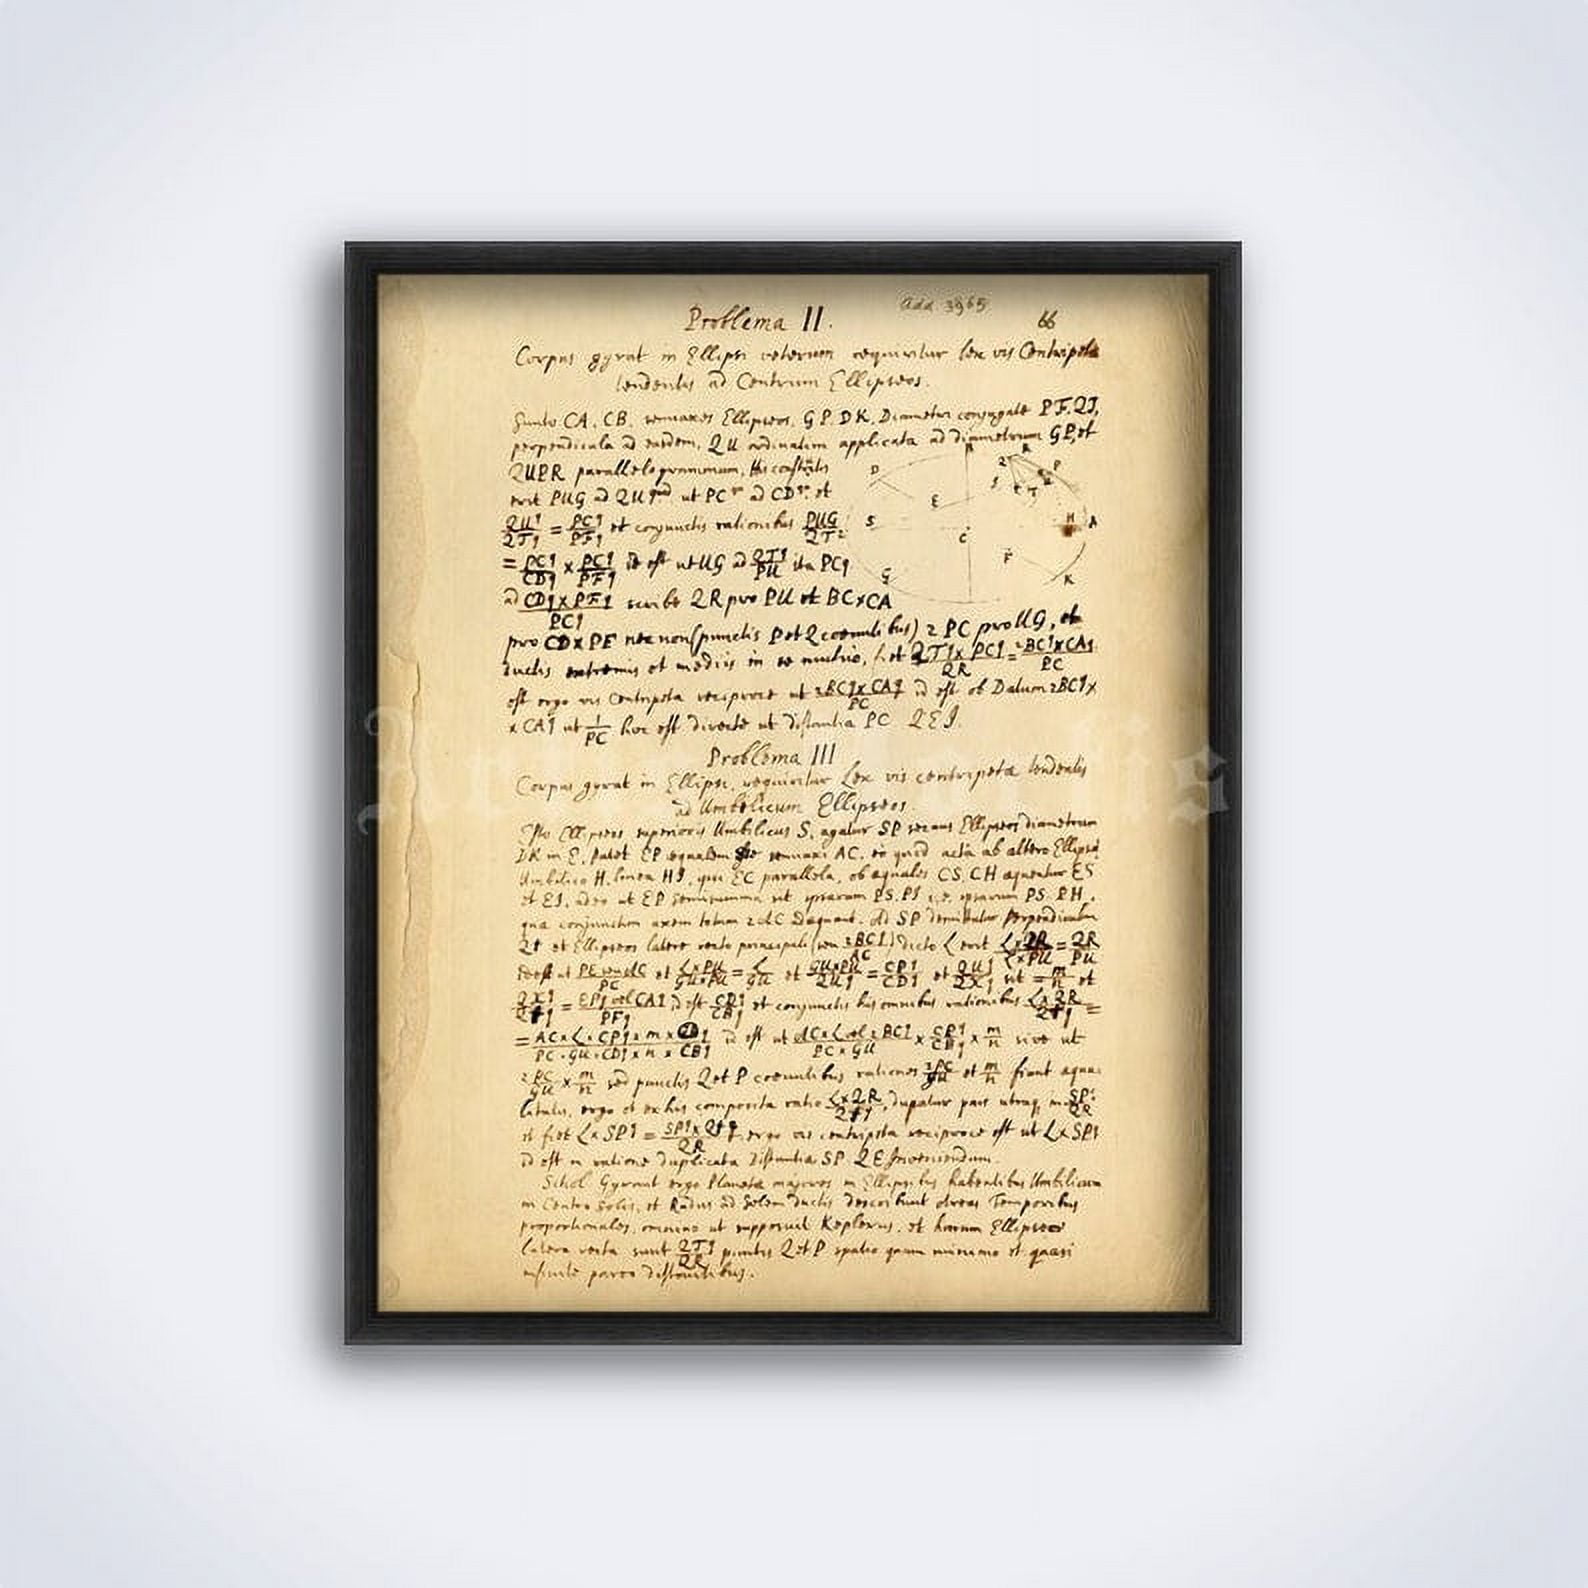 Add. 3965
66
Problema II.
Corpus gyrat in Ellipsi veterum requiritur lex vis Centripetæ
tendentis ad Centrum Ellipseos.
Sunto CA, CB, semiaxes Ellipseos, GP, DK, Diametri conjugatæ PF, QT,
perpendicula ad easdem, QU ordinatim applicata ad diametrum GP, et
QUPR parallelogrammum,
erit PUG ad QUquad ut PCq ad CDq et
QUq/QTq = PCq/PFq et conjunctis rationibus PUG/QTq
= PCq/CDq × PCq/PFq id est ut UG ad QTq/PU ita PCq
ad CDq×PFq/PCq scribe QR pro PU et BC×CA
pro CD×PF nec non (punctis P et Q coeuntibus) 2 PC pro UG, et
ductis extremis et mediis in se mutuo, fiet QTq×PCq/QR = 2BCq×CAq/PC
est ergo vis Centripeta reciproce ut 2BCq×CAq/PC id est ob Datum 2BCq×
×CAq ut 1/PC hoc est directe ut distantia PC QEI.
D E S G A R P T C F K H
Problema III
Corpus gyrat in Ellipsi, requiritur Lex vis centripetæ tendentis
ad Umbilicum Ellipseos.
Esto Ellipseos superioris Umbilicus S, agatur SP secans Ellipseos diametrum
DK in E. Patet EP æqualem semiaxi AC, eo quod acta ab altero Ellipseos
Umbilico H linea HI, ipsi EC parallela, ob æquales CS, CH æquentur ES
et EI, adeo ut EP semisumma sit ipsarum PS, PI ipsarum PS, PH,
quæ conjunctim axem totum 2AC adæquant. Ad SP demittatur perpendicularis
QT et Ellipseos latere recto principali (seu 2BCq/AC) dicto L erit L×QR/L×PU = QR/PU
id est ut PE seu AC/PC et L×PU/GU×PU = L/GU et GU×PU/QUq = CPq/CDq et QUq/QXq sit = m/n et
QXq/QTq = EPq vel CAq/PFq id est CDq/CBq et conjunctis his omnibus rationibus L×QR/QTq =
= AC×L×CPq×m×CDq/PC×GU×CDq×n×CBq id est ut AC×L vel 2BCq/PC×GU × CPq/CBq × m/n sive ut
2PC/GU × m/n sed punctis Q et P coeuntibus rationes 2PC/GU et m/n fiunt æqua-
litatis, ergo et ex his composita ratio L×QR/QTq, ducatur pars utraq in SPq/QR
et fiet L×SPq = SPq×QTq/QR, ergo vis centripeta reciproce est ut L×SPq
id est in ratione duplicata Distantiæ SP QE Inveniendum.
Schol. Gyrant ergo Planetæ majores in Ellipsibus habentibus Umbilicum
in Centro Solis, et Radiis ad Solem ductis describunt Areas Temporibus
proportionales, omnino ut supposuit Keplerus, et harum Ellipseon
latera recta sunt QTq/QR punctis Q et P spatio quam minimo et quasi
infinite parvo distantibus.